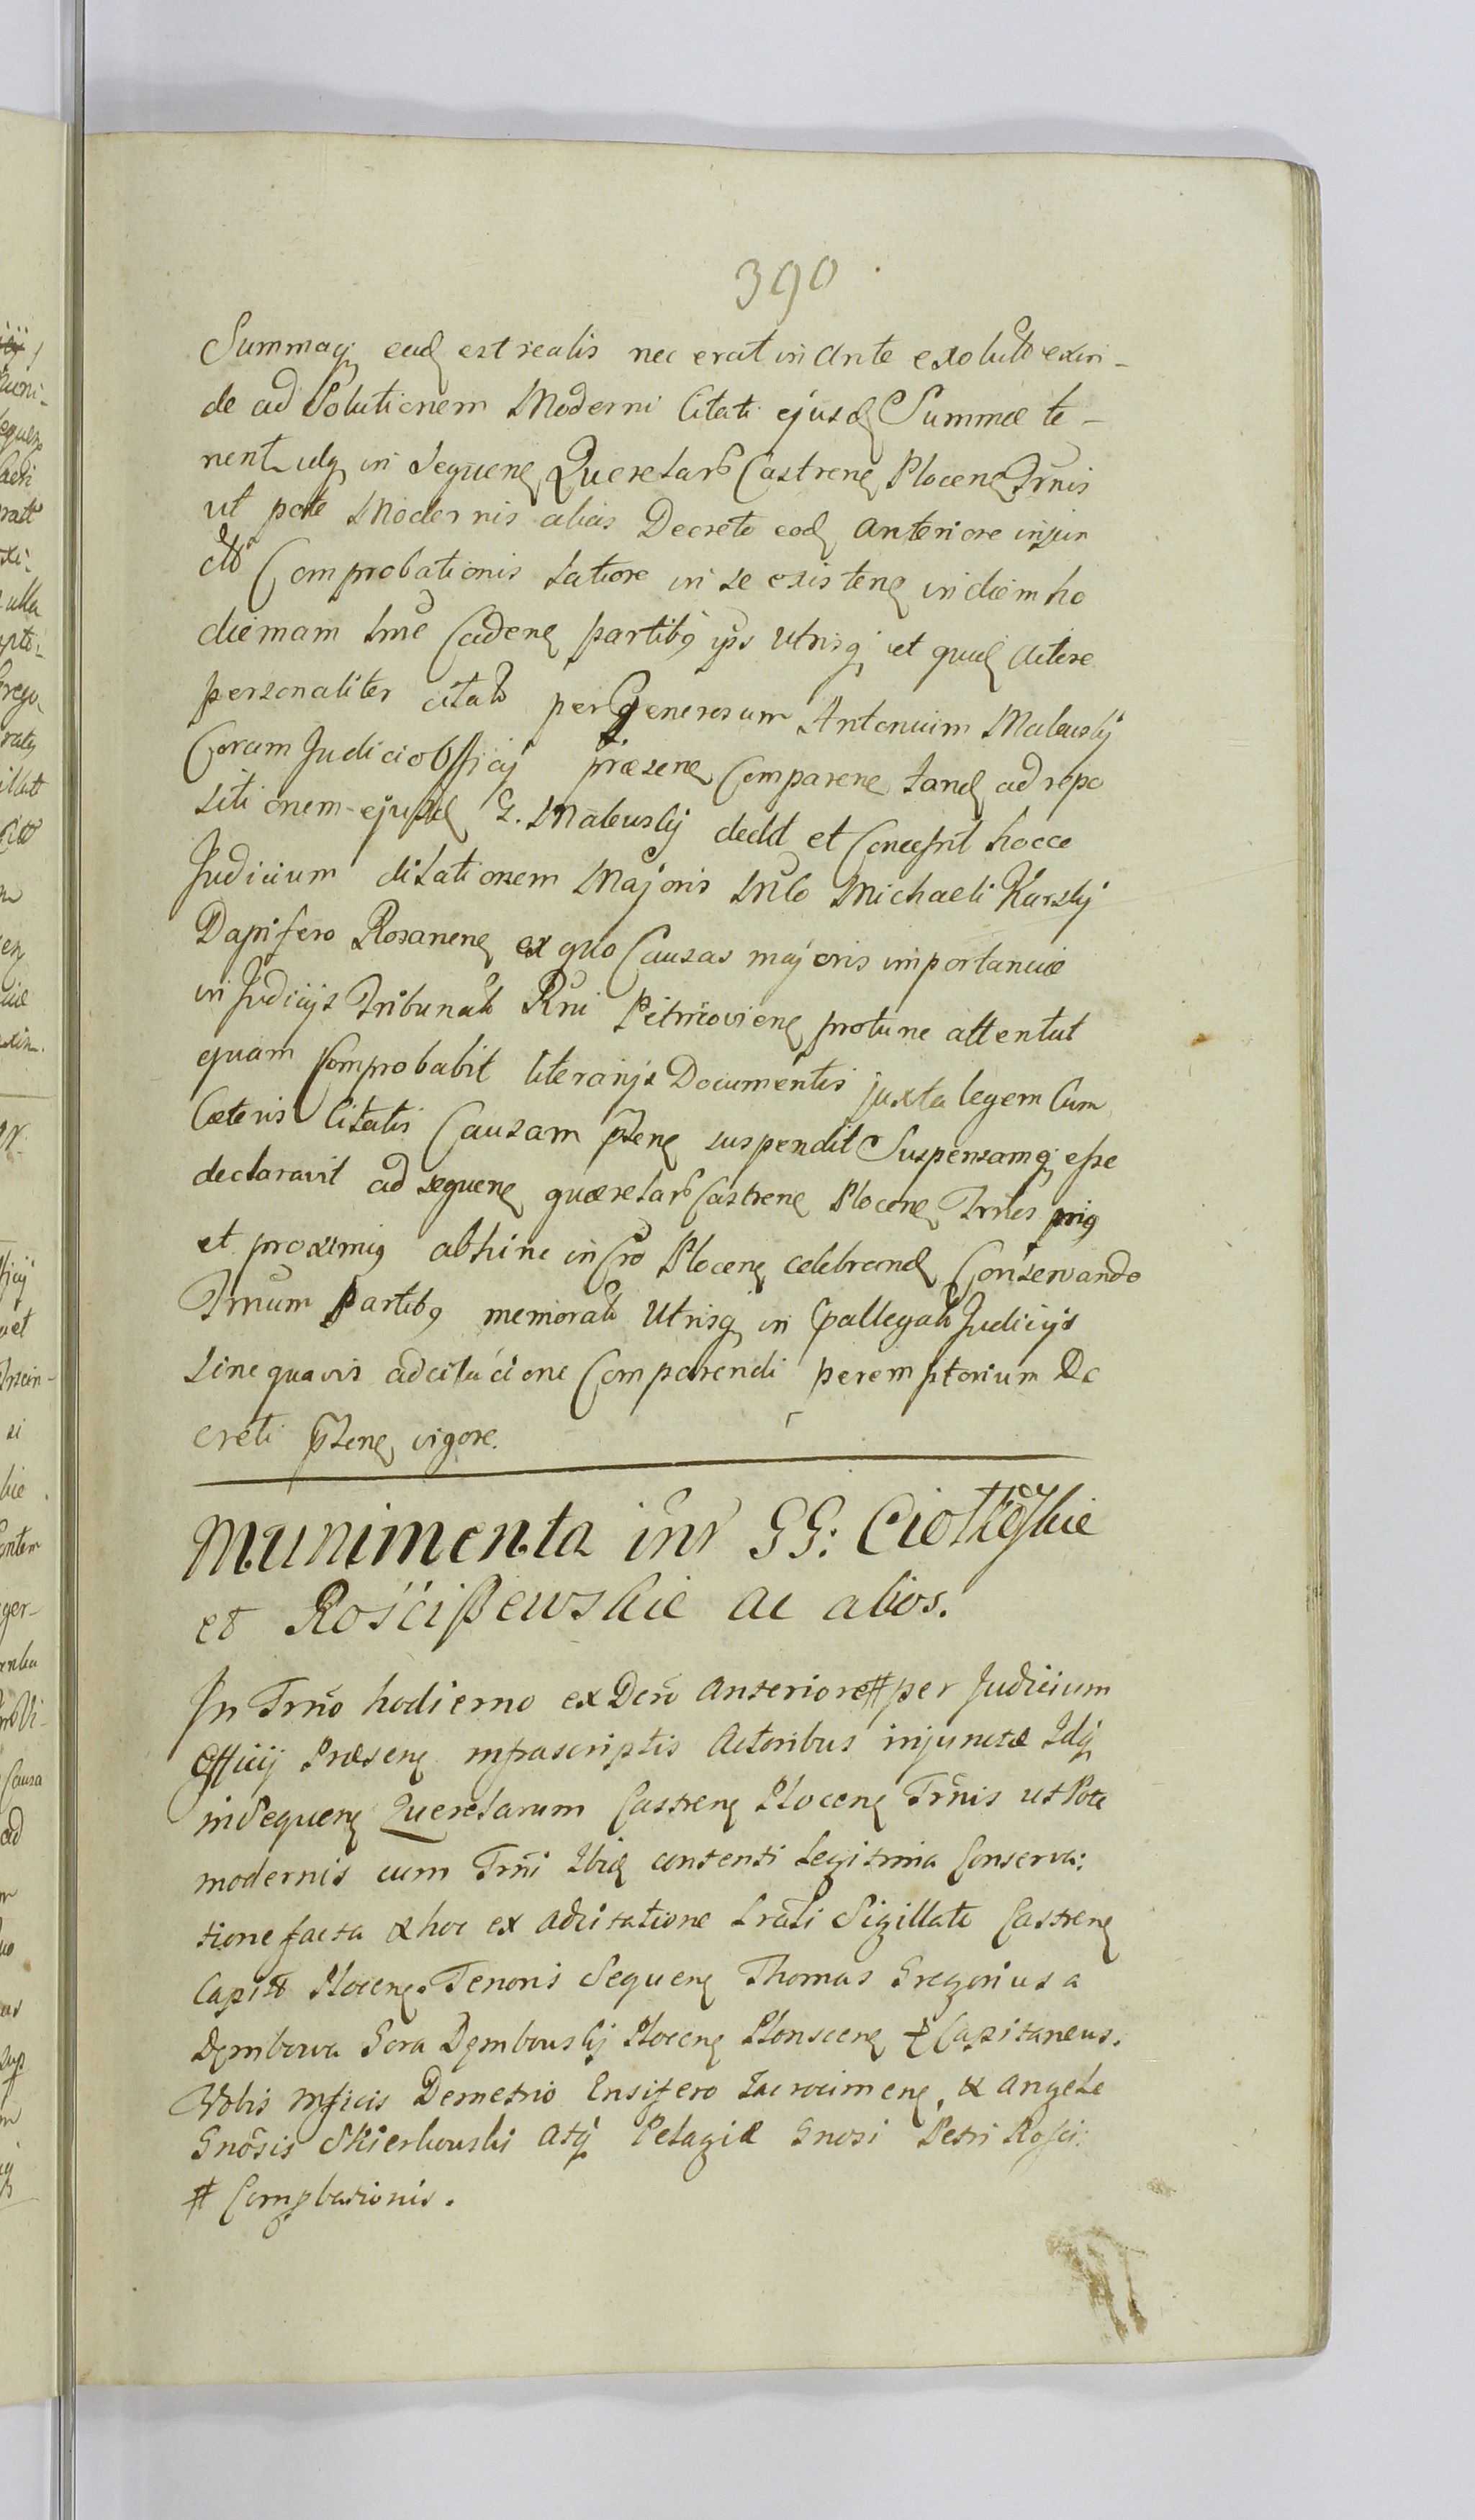 390
Summaq, ead est realis nec erat in ante exoluto exin-
de ad Solutionem Moderni Citati ejusd Summæ te-
nent idq in Sequen Querelarb Castren Plocen Trnis
ut pote Modernis alias Decreto eod anteriore injun
cto Comprobationis latiore in se existen in diem ho
diernam lme Caden partibq ips Utrisq et quid Actore
personaliter citato per Generosum Antonium Maleuskÿ
Coram Judicio Officÿ præsen Comparen tand ad repo
sitionem ejusd G. Maleuskÿ dedit et Concessit hocce
Judicium dilationem Majoris Mco Michaeli Karskÿ
Dapifero Rosanen ex quo Causas majoris importantiæ
in Judicÿs Tribunal Rni Petricovien protunc attentat
quam Comprobabit literarÿs Documentis juxta legem Cum
Cæteris Citatis Causam pnten suspendit Suspensamq esse
declaravit ad sequen quærelarb Castren Plocen Trnos priq
et proximq abhinc in Cro Plocen celebrand Conservando
Trnum Partibq memorat Utrisq in ßallegat Judicÿs
sine quavis adcitatione Comparendi peremptorium De
creti pnten vigore.
Munimenta inr GG: Ciołkoskie
et Rościßewskie ac alios.
In Trno hodierno ex Dcro anteriore # per Judicium
Officij Præsen infrascriptis Actoribus injunctæ Idq
in Sequen Querelarum Castren Plocen Trnis ut Pote
modernis cum Trni Ibid contenti Legitima Conserva:
tione facta & hoc ex adcitatione Lrali Sigillate Castren
Capit Plocen. Tenoris Sequen Thomas Gregorius a
Dęmbowa Gora Dęmbouskÿ Plocen Plonscen & Capitaneus.
Vobis Mficis Demetrio Ensifero Zacrocimen, & Angele
Gnosis Skierkouski Atq Pelagiæ Gnosi Petri Rosci:
# Compbationis.